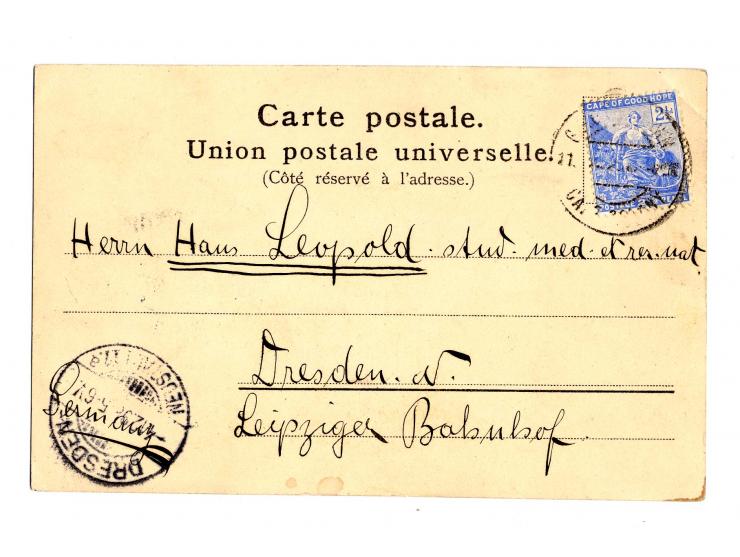 CAPE OF GOOD HOPE
2½
Carte postale.
Union postale universelle.
(Côté réservé à l'adresse.)
11.
Herrn Hans Leopold. stud. med. et rer. nat.
Dresden. N.
Leipziger Bahnhof.
Germany
DRESDEN